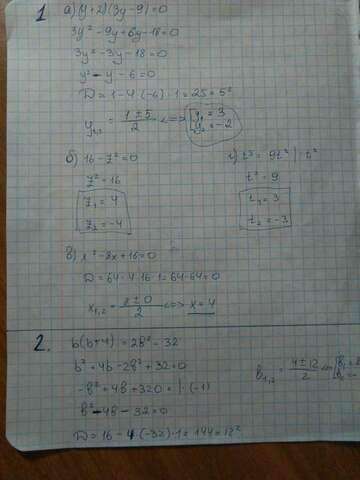 1 а) (y+2)(3y-9)=0
3y² - 9y + 6y - 18=0
3y² - 3y - 18=0
y² - y - 6=0
D = 1 - 4·(-6)·1 = 25 = 5²
y₁,₂ = (1 ± 5)/2 <=> [y₁ = 3
y₂ = -2
б) 16 - z² = 0
z² = 16
z₁ = 4
z₂ = -4
t² = 9
t₁ = 3
t₂ = -3
в) x² - 8x + 16=0
D = 64 - 4·16·1 = 64-64=0
<=> x = 4
2. b(b+4) = 2b² - 32
b² + 4b - 2b² + 32=0
-b² + 4b + 32=0 |·(-1)
b² - 4b - 32=0
D = 16 - 4·(-32)·1 = 144 = 12²
b₁,₂ = (4 ± 12)/2